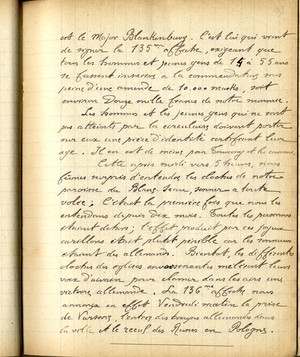 est le Major Blankenburg. C'est lui qui vient
de signer le 135me affiche, exigeant que
tous les hommes et jeunes gens de 15 à 55 ans
se fassent inscrire à la commandature sous
peine d'une amende de 10.000 marks, soit
environ Douze mille francs de notre monnaie.
Les hommes et les jeunes gens qui ne sont
pas atteints par la circulaire doivent porter
sur eux une pièce d'identité certifiant leur
âge. Il en est de même pour Tourcoing et les
Cette après midi vers 5 heures, nous
fûmes surpris d'entendre les cloches de notre
paroisse du Blanc Seau, sonner à toute
volée; c'était la première fois que nous les
entendions depuis Dix mois. Toutes les personnes
étaient dehors; l'effet produit par ces joyeux
carillons était plutôt pénible car les sonneurs
étaient des allemands. Bientôt, les différentes
cloches des églises environnantes mêlèrent leurs
voix d'airain pour clamer dans les airs une
victoire allemande. La 136me affiche nous
annonça en effet Vendredi matin la prise
de Varsovie, l'entrée des troupes allemandes dans
la ville et le recul des Russes en Pologne.